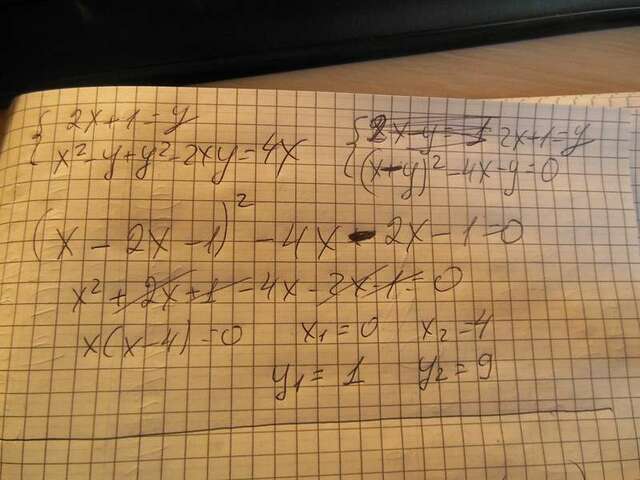 { 2x+1=y
{ x²-y+y²-2xy=4x
{ 2x-y=1 2x+1=y
{ (x-y)²-4x-y=0
(x-2x-1)²-4x-2x-1=0
x²+2x+1-4x-2x-1=0
x(x-4)=0 x₁=0 x₂=4
y₁=1 y₂=9